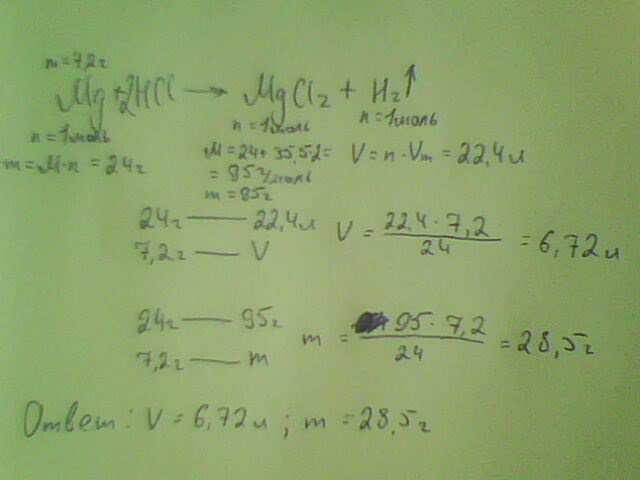 m = 7,2г
Mg + 2HCl → MgCl₂ + H₂↑
n = 1моль n = 1моль n = 1моль
m = M·n = 24г M = 24 + 35,5·2 = V = n·Vm = 22,4л
= 95г/моль
m = 95г
24г — 22,4л V = 22,4 · 7,2 / 24 = 6,72л
7,2г — V
24г — 95г m = 95 · 7,2 / 24 = 28,5г
7,2г — m
Ответ: V = 6,72л ; m = 28,5г